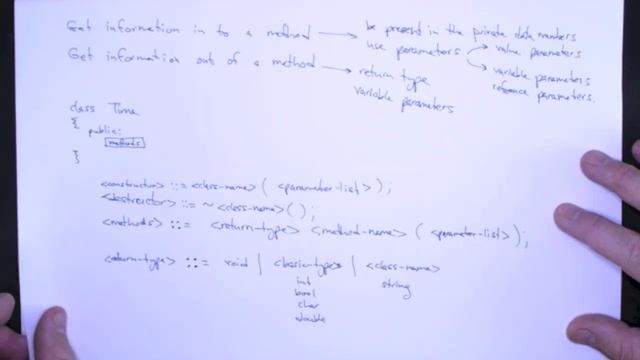 Get information in to a method → be present in the private data members
use parameters → value parameters
→ variable parameters
reference parameters.
Get information out of a method → return type
variable parameters
class Time
{
public:
methods
}
<constructor> ::= <class-name> ( <parameter-list> );
<destructor> ::= ~ <class-name> ( );
<methods> ::= <return-type> <method-name> ( <parameter-list> );
<return-type> ::= void | <basic-type> | <class-name>
int string
bool
char
double